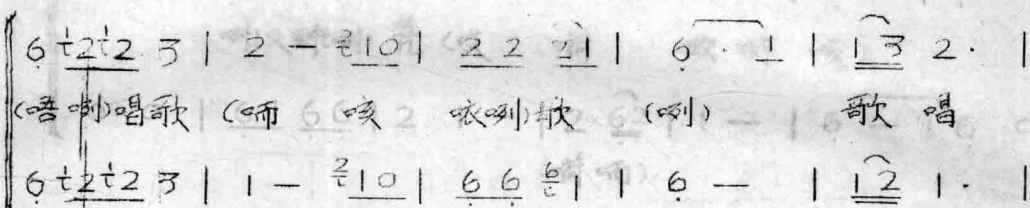 6 2 2 3 | 2 - 1 0 | 2 2 2 1 | 6 · 1 | 1 3 2 · |
(唔咧)唱歌 (嗬 咳 咴咧)歌 (咧) 歌 唱
6 2 2 3 | 1 - 1 0 | 6 6 1 | 6 - | 1 2 1 · |